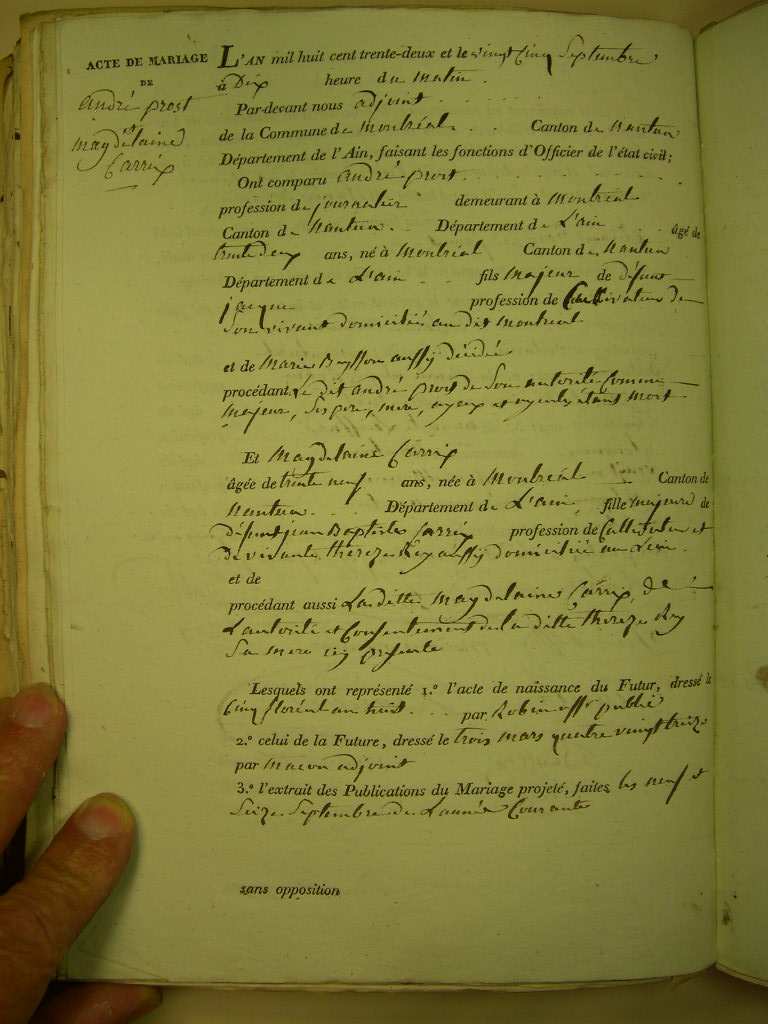 ACTE DE MARIAGE
DE
andré prost
et
magdelaine
Carrix
L'AN mil huit cent trente-deux et le vingt Cinq Septembre
à Dix heure du matin.
Par-devant nous adjoint
de la Commune de montréal Canton de nantua
Département de l'Ain, faisant les fonctions d'Officier de l'état civil;
Ont comparu andré prost
profession de journalier demeurant à montréal
Canton de nantua Département de L'ain âgé de
trente deux ans, né à montréal Canton de nantua
Département de L'ain fils majeur de défunt
jacque profession de Cultivateur de
son vivant domicilié au dit montréal
et de marie Buffon aussy décédée
procédant Le dit andré prost de Son autorité Comme
majeur, Ses pere, mere, ayeux et ayeules étant mort
Et magdelaine Carrix
âgée de trente neuf ans, née à montréal Canton de
nantua Département de L'ain, fille majeure de
défunt jean Baptiste Carrix profession de Cultivateur et
de vivante thereze Rey aussy domiciliée au Lieu
et de
procédant aussi Laditte magdelaine Carrix, de
L'autorité et Consentement de la ditte thereze Rey
Sa mere icy présente
Lesquels ont représenté 1.º l'acte de naissance du Futur, dressé le
Cinq floréal an huit par Robin off. public
2.º celui de la Future, dressé le trois mars quatre vingt treize
par macon adjoint
3.º l'extrait des Publications du Mariage projeté, faites les neuf et
Seize Septembre de L'année Courante
sans opposition